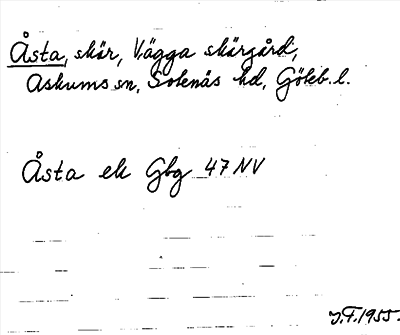 Åsta, skär, Vägga skärgård,
Askums sn, Sotenäs hd, Göteb. l.
Åsta ek Gbg 47 NV
J.F. 1955.